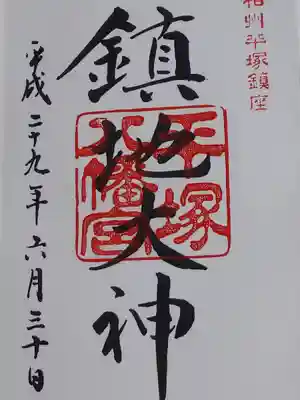 相州平塚鎮座
鎮地大神
平塚八幡宮
平成二十九年六月三十日